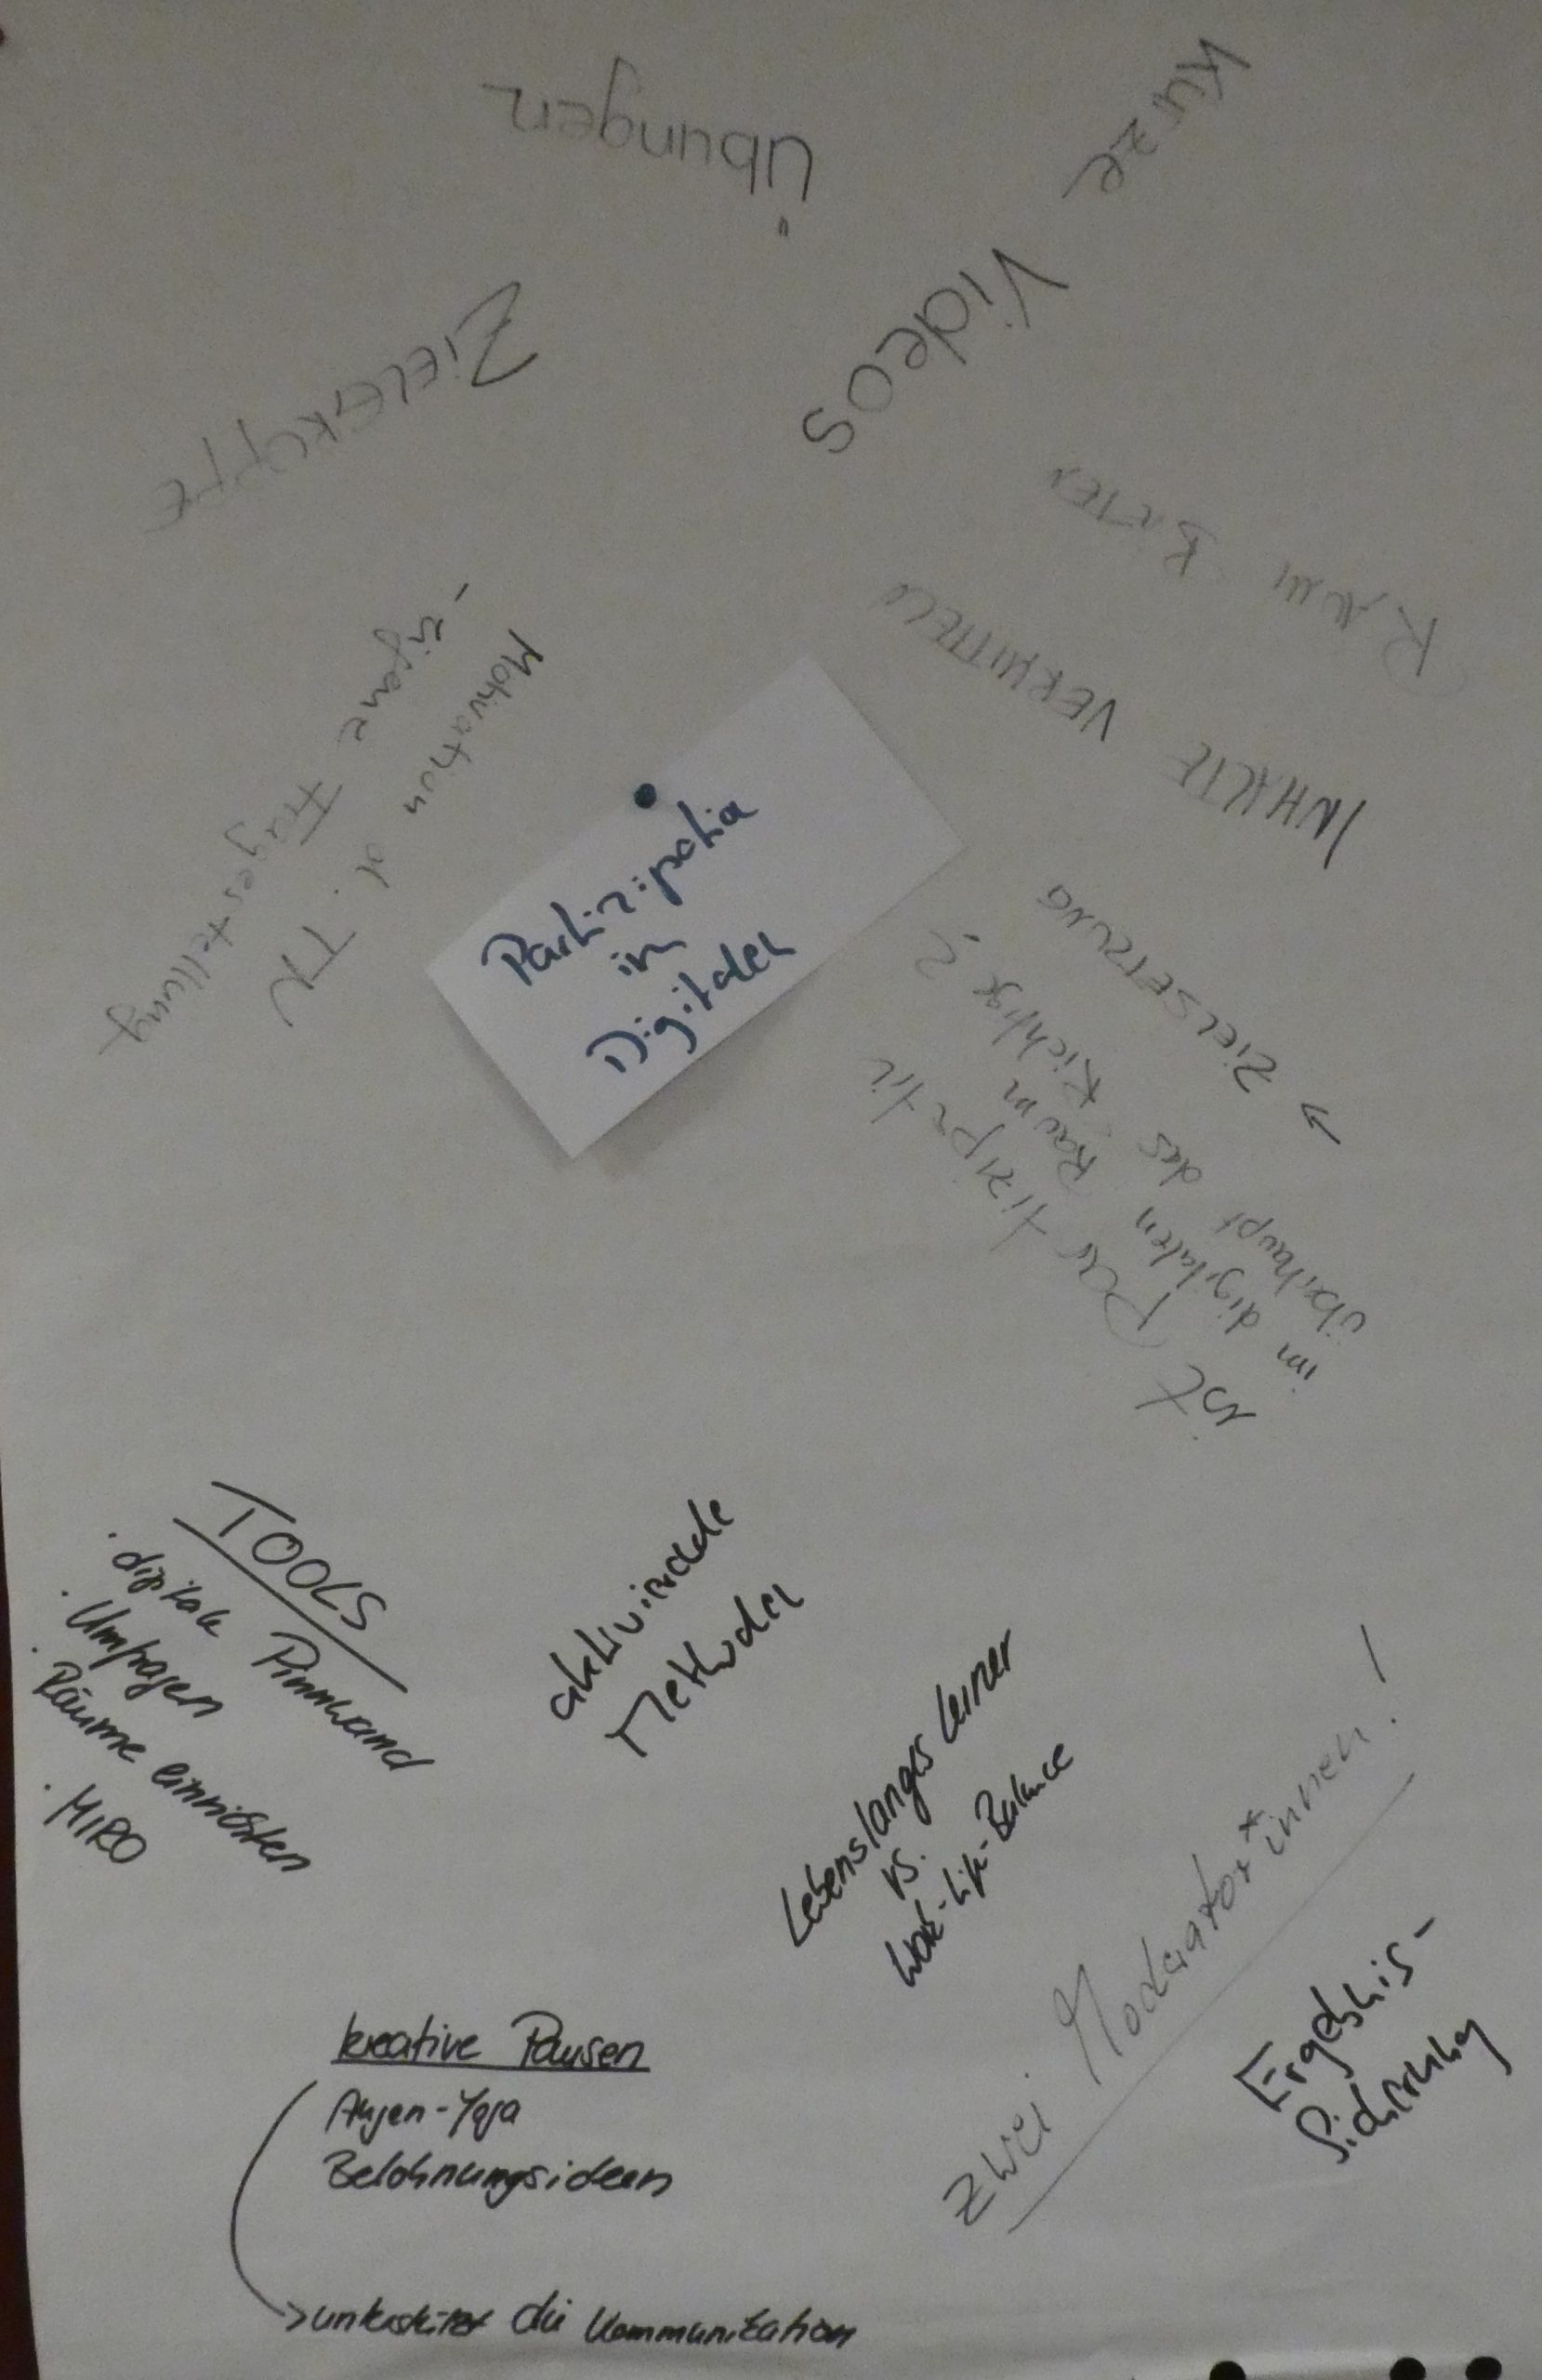 Übungen
Kurze
Videos
Raum bieten
Inhalte vermitteln
→ Zielsetzung
Ist Partizipation
im digitalen Raum
überhaupt das Richtige?
- eigene Fragestellung
Motivation d. TN
Partizipation
im
Digitalen
TOOLS
· digitale Pinnwand
· Umfragen
· Räume einrichten
· MIRO
aktivierende
Methoden
Lebenslanges Lernen
vs.
Work-Life-Balance
zwei Moderator*innen!
Ergebnis-
sicherung
kreative Pausen
Augen-Yoga
Belohnungsideen
> unterstützt die Kommunikation